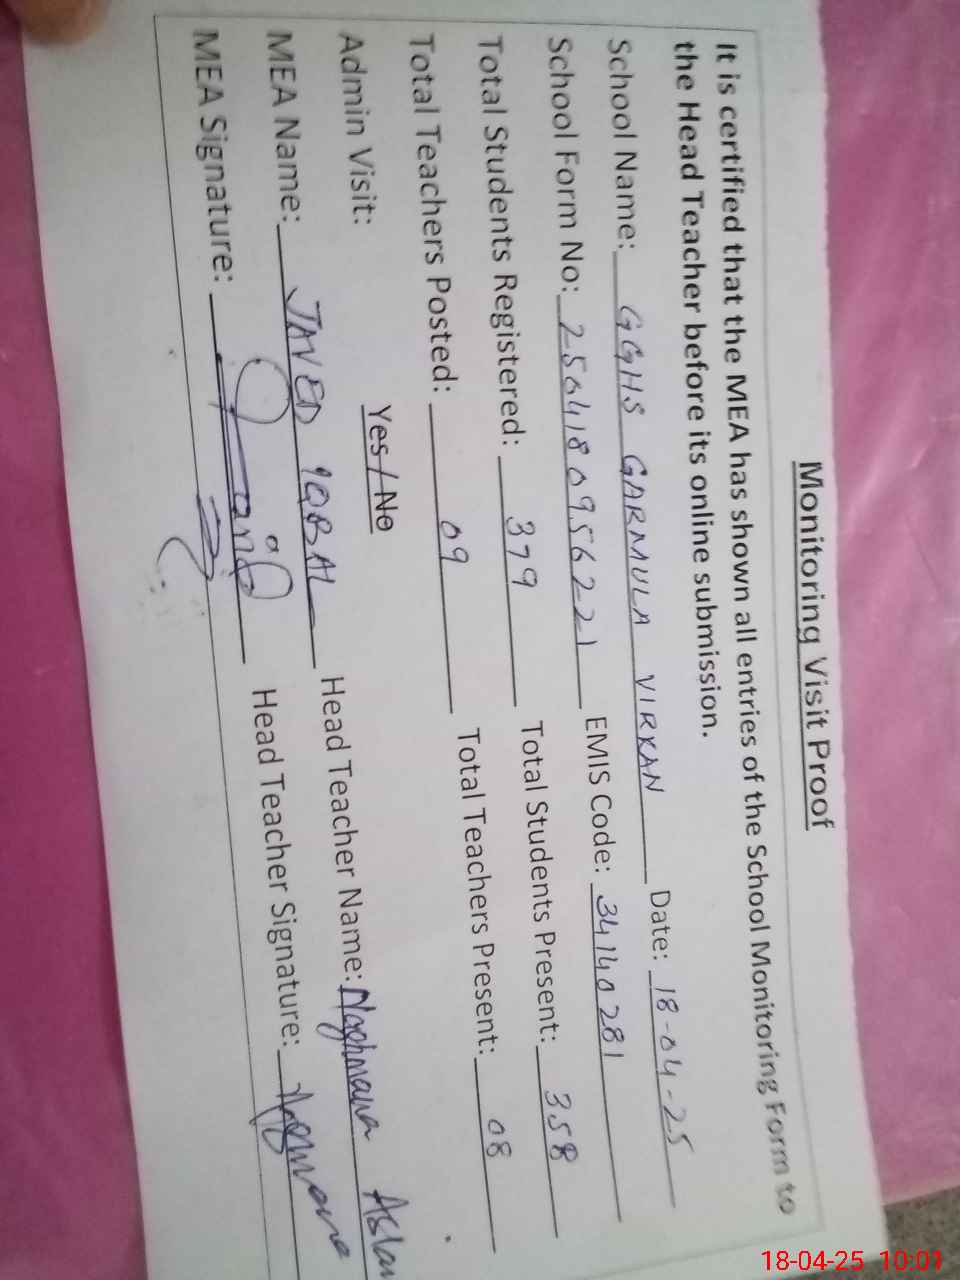 Monitoring Visit Proof
It is certified that the MEA has shown all entries of the School Monitoring Form to
the Head Teacher before its online submission.
School Name: GGHS GARMULA VIRKAN Date: 18-04-25
School Form No: 2504180956221 EMIS Code: 34140281
Total Students Registered: 379 Total Students Present: 358
Total Teachers Posted: 09 Total Teachers Present: 08
Admin Visit: Yes / No
MEA Name: JAVED IQBAL Head Teacher Name: Naghmana Aslam
MEA Signature: Head Teacher Signature:
18-04-25 10:01